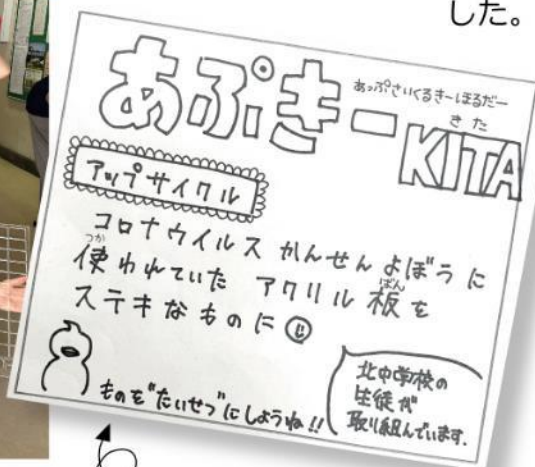 した。
あぷきーKITA
あっぷさいくるきーほるだー
きた
アップサイクル
コロナウイルスかんせんよぼうに
使われていた アクリル板を
つか
ばん
ステキなものに
ものを"たいせつ"にしようね!!
北中学校の
生徒が
取り組んでいます.